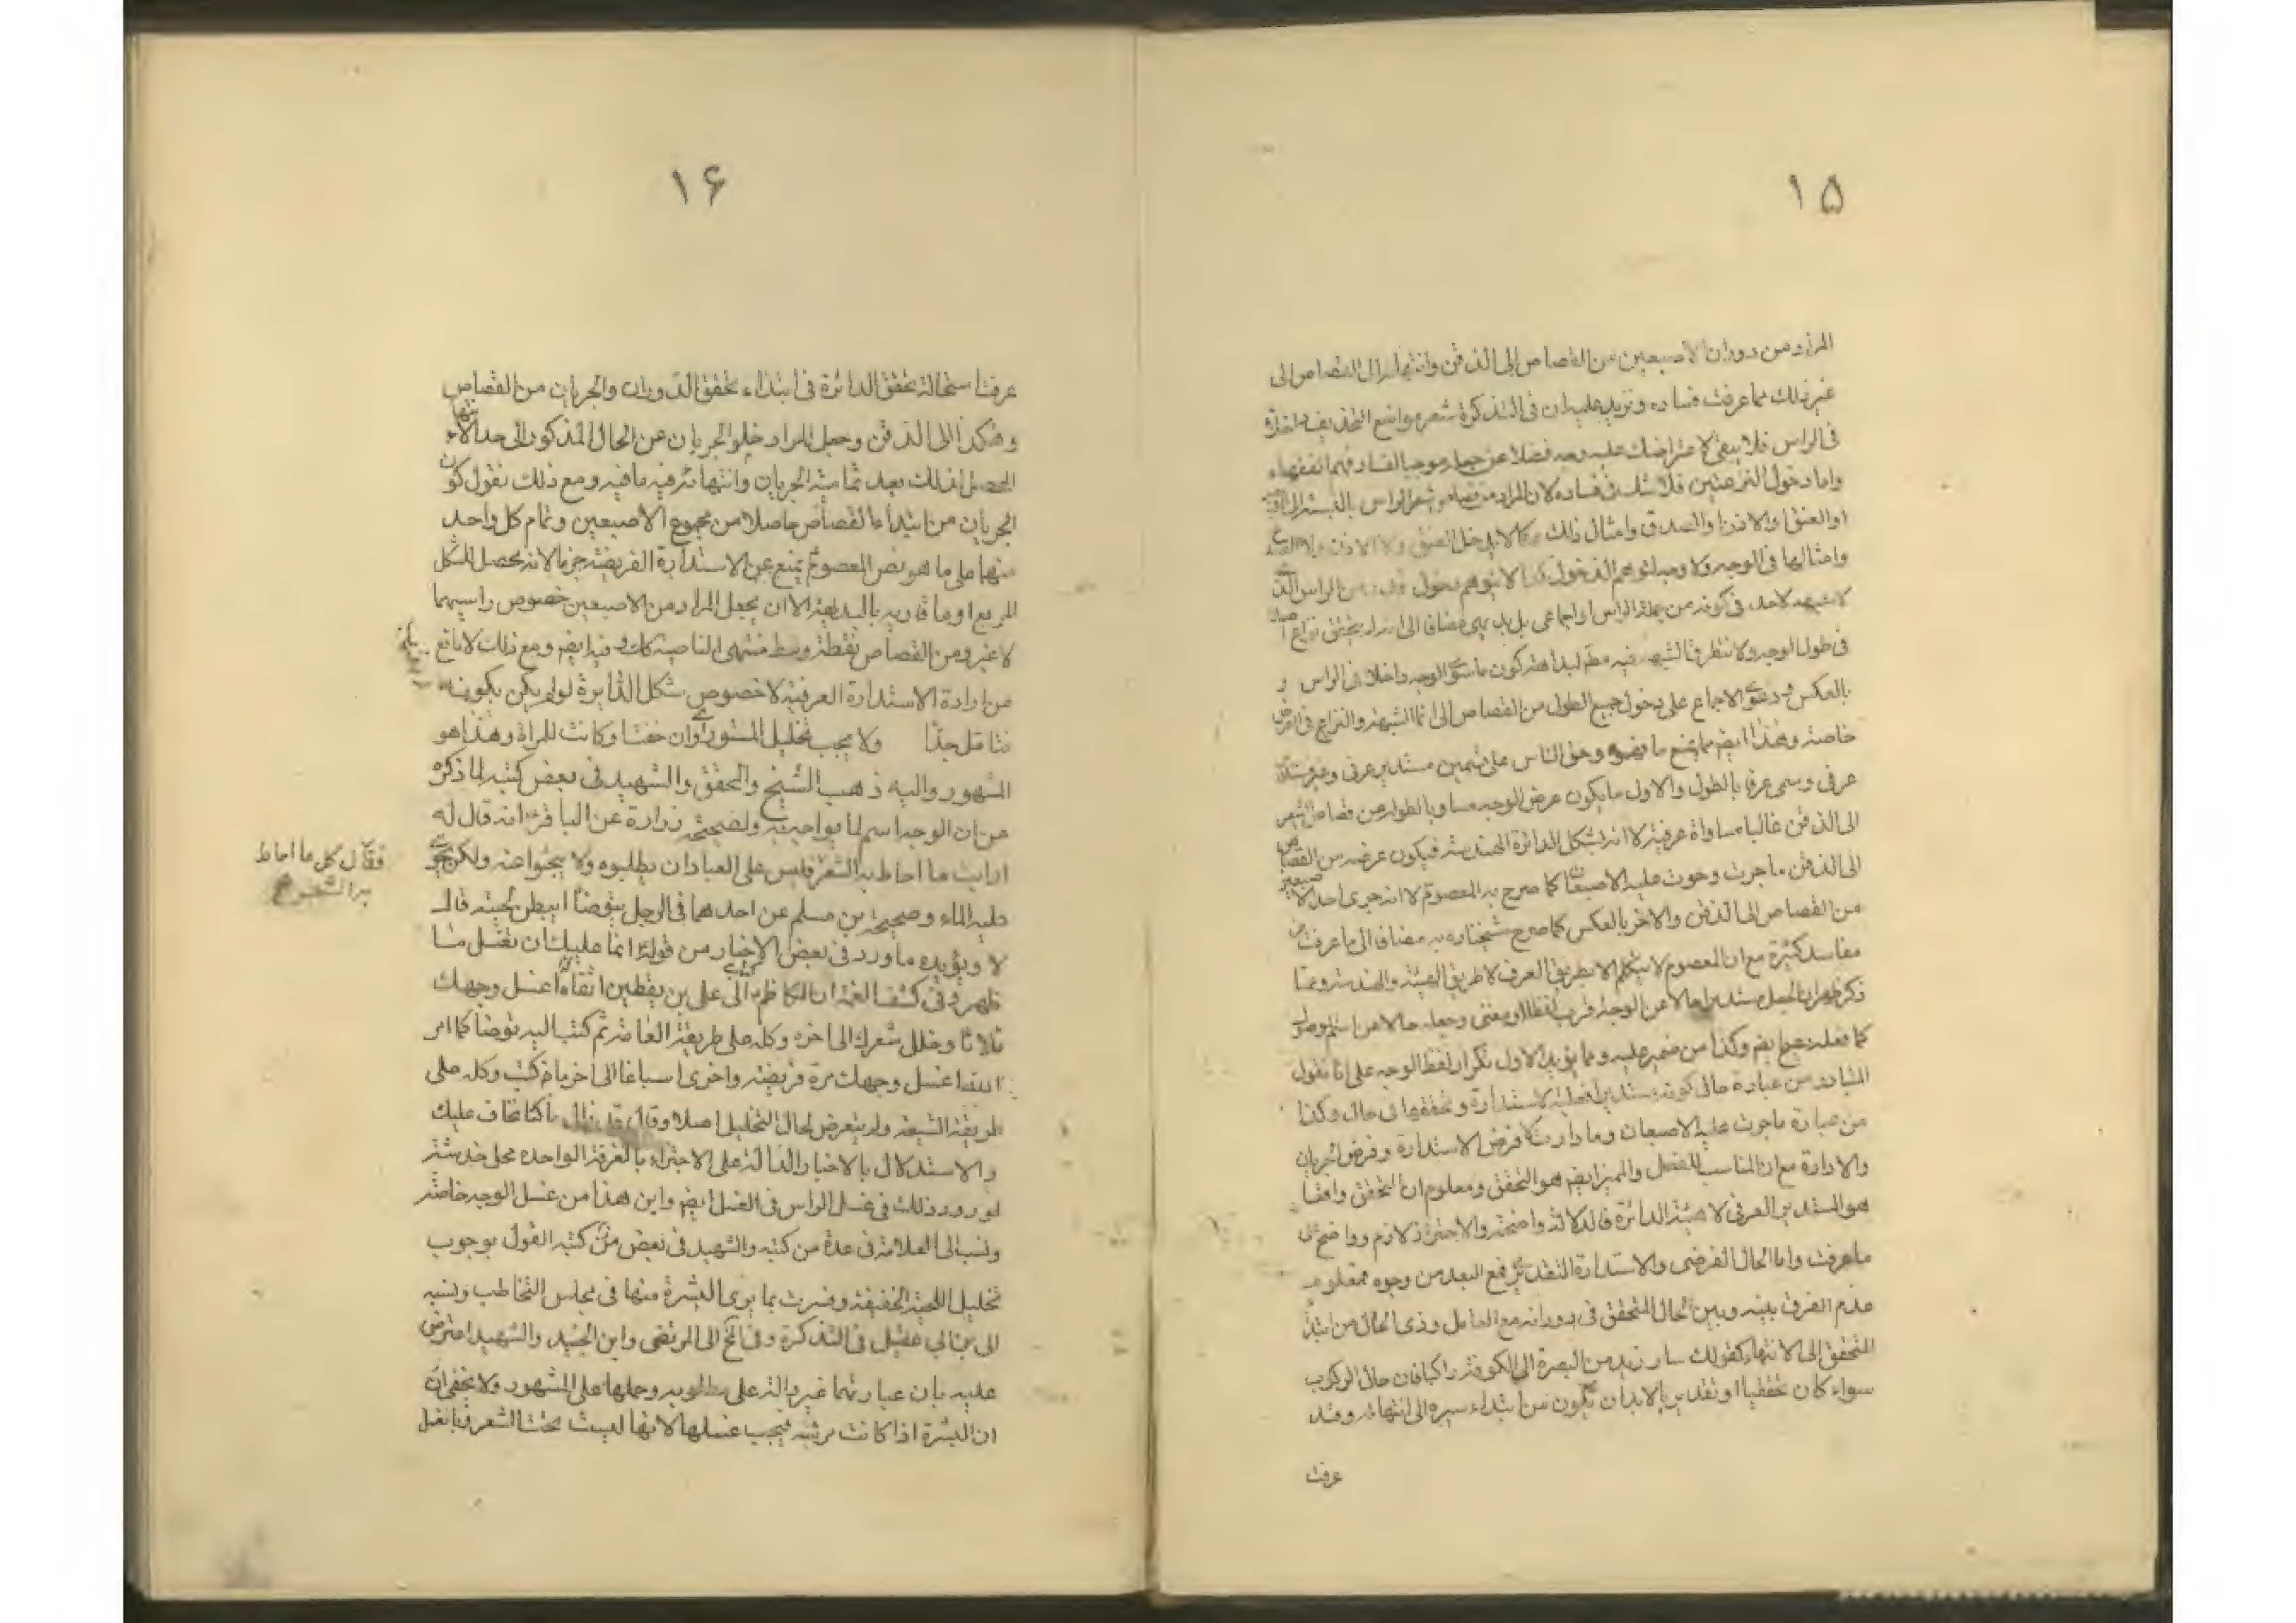 ١٥
المراد من دوران الاصبعين من القصاص الى الذقن وانتهاء الى القصاص الى
غير ذلك مما عرفت فساده ونزيد عليه ان فى التذكرة شعر مواضع التحذيف داخلة
فى الراس فلا يبقى لاعتراضك عليه وجه فضلا عن جعله موجبا لفساد فهم الفقهاء
واما دخول النزعتين فلا شك فى فساده لان المراد من قصاص شعر الراس بالنسبة الى
او العنق والاذن والصدق وامثال ذلك فكما لا يدخل العنق ولا الاذن ولا
وامثالها فى الوجه ولا وجه لتوهم الدخول كذا لا يتوهم دخول من الراس الذى
لا شبهة لاحد فى كونه من جملة الراس اجماعى بل بديهى مضافا الى انه لم يتحقق نزاع
فى طول الوجه ولا تتطرق الشبهة فيه مط لبداهة كون ما سوى الوجه داخلا فى الراس و
بالعكس ودعوى الاجماع على دخول جميع الطول من القصاص الى انما الشبهة والنزاع فى العرض
خاصة وهذا ايضم مما يمنع ما فهموه وحق الناس على قسمين مستدير عرفى وغير مستدير
عرفى ويسمى عرفا بالطول والاول ما يكون عرض الوجه مساويا لطوله من قصاص الشعر
الى الذقن غالبا مساواة عرفية لا انه بشكل الدائرة الهندسية فيكون عرضه من القصاص
الى الذقن ما جرت وحوت عليه الاصبعان كما صرح به المعصوم لا انه جرى احد الاصبعين
من القصاص الى الذقن والاخر بالعكس كما صرح شيخنا ره به مضافا الى ما عرفت من
مفاسد كثيرة مع ان المعصوم لا يتكلم الا بطريق العرف لا طريق الهيئة والهندسة ومما
ذكر ظهر ان الجعل مستديرا حالا عن الوجه اقرب لفظا ومعنى وجعله حالا من اسم الموصول
كما فعله جمع ايضم وكذا من ضمير عليه ومما يؤيد الاول تكرار لفظ الوجه على انا نقول
المتبادر من عبارة حالى كونه مستديرا فعلية الاستدارة وتحققها فى حال وكذا
من عبارة ما جرت عليه الاصبعان وما دارت لا فرض الاستدارة وفرض الجريان
والادارة مع ان المناسب للفصل والمميز ايضم هو التحقق ومعلوم ان المتحقق واقعا
هو المستدير العرفى لا هيئة الدائرة فالدلالة واضحة والاحتراز لازم وواضح على
ما عرفت واما الحال الفرضى والاستدارة التقديرى فمع البعد من وجوه فمعلوم
عدم الفرق بينه وبين الحال المتحقق فى دورانه مع العامل وذى الحال من ابتداء
المتحقق الى الانتهاء كقولك سار زيد من البصرة الى الكوفة راكبا فان حال الركوب
سواء كان تحقيقيا او تقديريا لابد ان يكون من ابتداء سيره الى انتهائه وقد
عرفت
١۶
عرفت استحالة تحقق الدائرة فى ابتداء تحقق الدوران والجريان من القصاص
وهكذا الى الذقن وجعل المراد خلو الجريان عن الحال المذكور الى حد الانتهاء
الحصل لذلك بعد تمامية الجريان وانتهائه فيه ما فيه ومع ذلك نقول كون
الجريان من ابتداء القصاص حاصلا من مجموع الاصبعين وتمام كل واحد
منهما على ما هو نص المعصوم يمنع عن الاستدارة الفرضية جزما لانه يحصل الشكل
المربع او ما قاربه بالبديهة الا ان يجعل المراد من الاصبعين خصوص راسيهما
لا غير ومن القصاص نقطة وسط منتهى الناصية كك وفيه ايضم ومع ذلك لا مانع
من ارادة الاستدارة العرفية لا خصوص شكل الدائرة لو لم يكن بكونه
فتامل جدا ولا يجب تخليل الشعور وان خفت او كانت للمراة وهذا هو
المشهور واليه ذهب الشيخ والمحقق والشهيد فى بعض كتبه لما ذكره
من ان الوجه اسم لما يواجه به ولصحيحة زرارة عن الباقر انه قال له
ارايت ما احاط به الشعر فليس على العباد ان يطلبوه ولا يبحثوا عنه ولكن يجرى
عليه الماء وصحيحة بن مسلم عن احدهما فى الرجل يتوضأ ايبطن لحيته قال
لا ويؤيده ما ورد فى بعض الاخبار من قوله انما عليك ان تغسل ما
ظهر وفى كشف الغمة ان الكاظم كتب الى على بن يقطين اتقاء اغسل وجهك
ثلاثا وخلل شعرك الى اخره وكله على طريقة العامة ثم كتب اليه توضأ كما امر
الله اغسل وجهك مرة فريضة واخرى اسباغا الى اخر ما كتب وكله على
طريقة الشيعة ولم يتعرض لحال التخليل اصلا وقال قد زال ما كنا نخاف عليك
والاستدلال بالاخبار الدالة على الاجتزاء بالغرفة الواحدة محل خدشة
لورود ذلك فى غسل الراس فى الغسل ايضم واين هذا من غسل الوجه خاصة
ونسب الى العلامة فى عدة من كتبه والشهيد فى بعض من كتبه القول بوجوب
تخليل اللحية الخفيفة وفسرت بما يرى البشرة منها فى مجلس التخاطب ونسبه
الى بن ابى عقيل فى التذكرة وفى لخ الى المرتضى وابن الجنيد والشهيد اعترض
عليه بان عبارتهما غير دالة على مطلوبه وحملها على المشهور ولا يخفى ان
ان البشرة اذا كانت مرئية فيجب غسلها لانها ليست تحت الشعر وبانغسل
فقال كل ما احاط
به الشعر